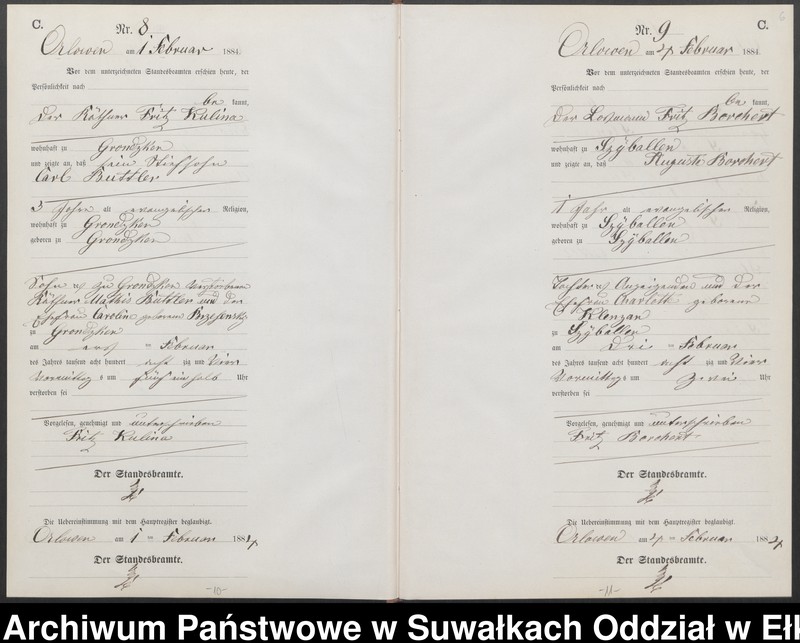 C.
Nr. 8
Orlowen am 1 Februar 1884
Vor dem unterzeichneten Standesbeamten erschien heute, der
Persönlichkeit nach
be kannt,
der Käthner Fritz Kulina
wohnhaft zu Grondzken
und zeigte an, daß sein Stiefsohn
Carl Büttler
3 Jahre alt evangelischer Religion,
wohnhaft zu Grondzken
geboren zu Grondzken
Sohn des zu Grondzken verstorbenen
Käthner Mathis Büttler und der
Ehefrau Carolin geborene
zu Grondzken
am erst = Februar
des Jahres tausend acht hundert acht zig und Vier
Vormittag s um fünf ein halb Uhr
verstorben sei
Vorgelesen, genehmigt und unterschrieben
Fritz Kulina
Der Standesbeamte.
Die Uebereinstimmung mit dem Hauptregister beglaubigt.
Orlowen am 1 = Februar 1884
Der Standesbeamte.
-10-
6
C.
Nr. 9
Orlowen am 4 Februar 1884
Vor dem unterzeichneten Standesbeamten erschien heute, der
Persönlichkeit nach
be kannt,
der Losmann Fritz Borchert
wohnhaft zu Szÿballen
und zeigte an, daß Auguste Borchert
1 Jahr alt evangelischer Religion,
wohnhaft zu Szÿballen
geboren zu Szÿballen
Tochter des Anzeigenden und der
Ehefrau Charlott geborene
Klenzan
zu Szÿballen
am Drei = Februar
des Jahres tausend acht hundert acht zig und Vier
Vormittag s um zwei Uhr
verstorben sei
Vorgelesen, genehmigt und unterschrieben
Fritz Borchert
Der Standesbeamte.
Die Uebereinstimmung mit dem Hauptregister beglaubigt.
Orlowen am 4 = Februar 1884
Der Standesbeamte.
-11-
Archiwum Państwowe w Suwałkach Oddział w Eł